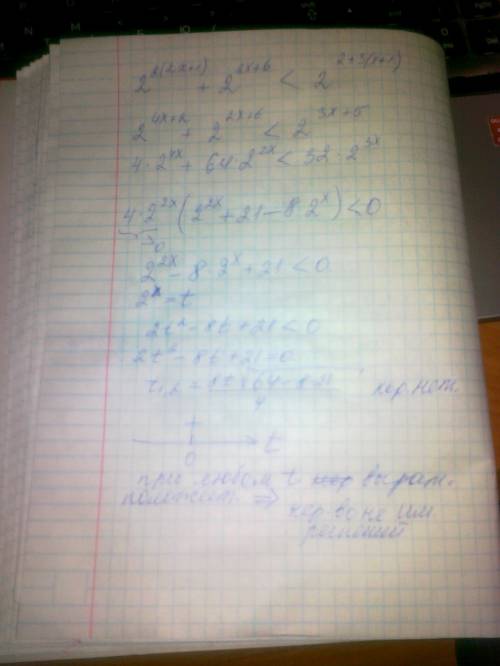 2^{2(2x+1)} + 2^{2x+6} < 2^{2+3(x+1)}
2^{4x+2} + 2^{2x+6} < 2^{3x+5}
4·2^{4x} + 64·2^{2x} < 32·2^{3x}
4·2^{2x}(2^{2x} + 21 - 8·2^{x}) < 0
>0
2^{2x} - 8·2^{x} + 21 < 0
2^{x} = t
2t² - 8t + 21 < 0
2t² - 8t + 21 = 0
кор. нет.
+
0 t
при любом t выраж.
положит. ⇒
нер-во не им
решений